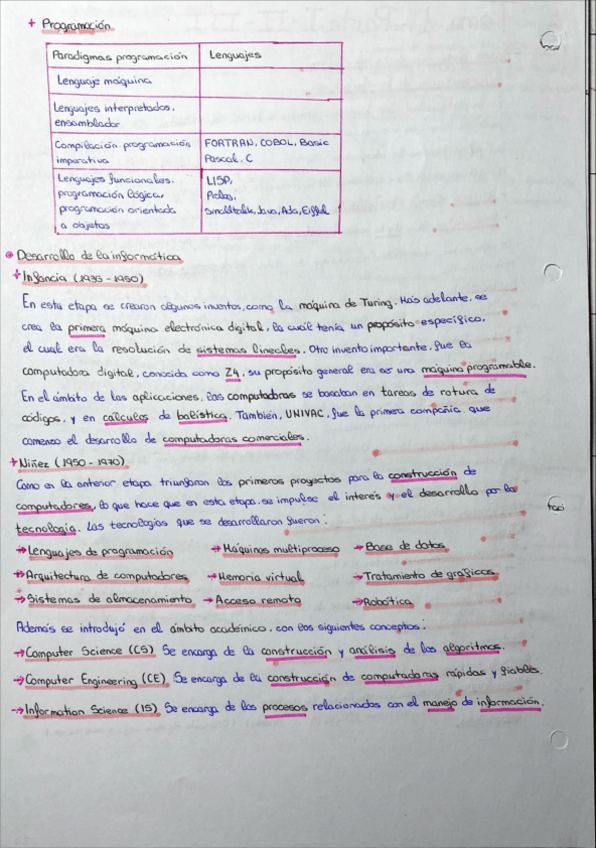 + Programación
Paradigmas programación Lenguajes
Lenguaje máquina
Lenguajes interpretados.
ensamblador
Compilación. programación FORTRAN, COBOL, Basic
imperativa Pascal. C
Lenguajes funcionales. LISP,
programación lógica, Prolog,
programación orientada Smalltalk, Java, Ada, Eiffel
a objetos
Desarrollo de la informática
+ Infancia (1935 - 1950)
En esta etapa se crearon algunos inventos, como la máquina de Turing. Más adelante, se
crea la primera máquina electrónica digital, la cual tenía un propósito específico,
el cual era la resolución de sistemas lineales. Otro invento importante, fue la
computadora digital, conocida como Z4, su propósito general era ser una máquina programable.
En el ámbito de las aplicaciones, las computadoras se basaban en tareas de rotura de
códigos, y en cálculos de balística. También, UNIVAC, fue la primera compañía que
comenzó el desarrollo de computadoras comerciales.
+ Niñez (1950 - 1970)
Como en la anterior etapa triunfaron los primeros proyectos para la construcción de
computadores, lo que hace que en esta etapa se impulse el interés y el desarrollo por la
tecnología. Las tecnologías que se desarrollaron fueron:
→ Lenguajes de programación → Máquinas multiproceso → Base de datos
→ Arquitectura de computadores → Memoria virtual → Tratamiento de gráficos
→ Sistemas de almacenamiento → Acceso remoto → Robótica
Además se introdujo en el ámbito académico, con los siguientes conceptos:
→ Computer Science (CS) Se encarga de la construcción y análisis de los algoritmos.
→ Computer Engineering (CE) Se encarga de la construcción de computadoras rápidas y fiables.
→ Information Science (IS) Se encarga de los procesos relacionados con el manejo de información.